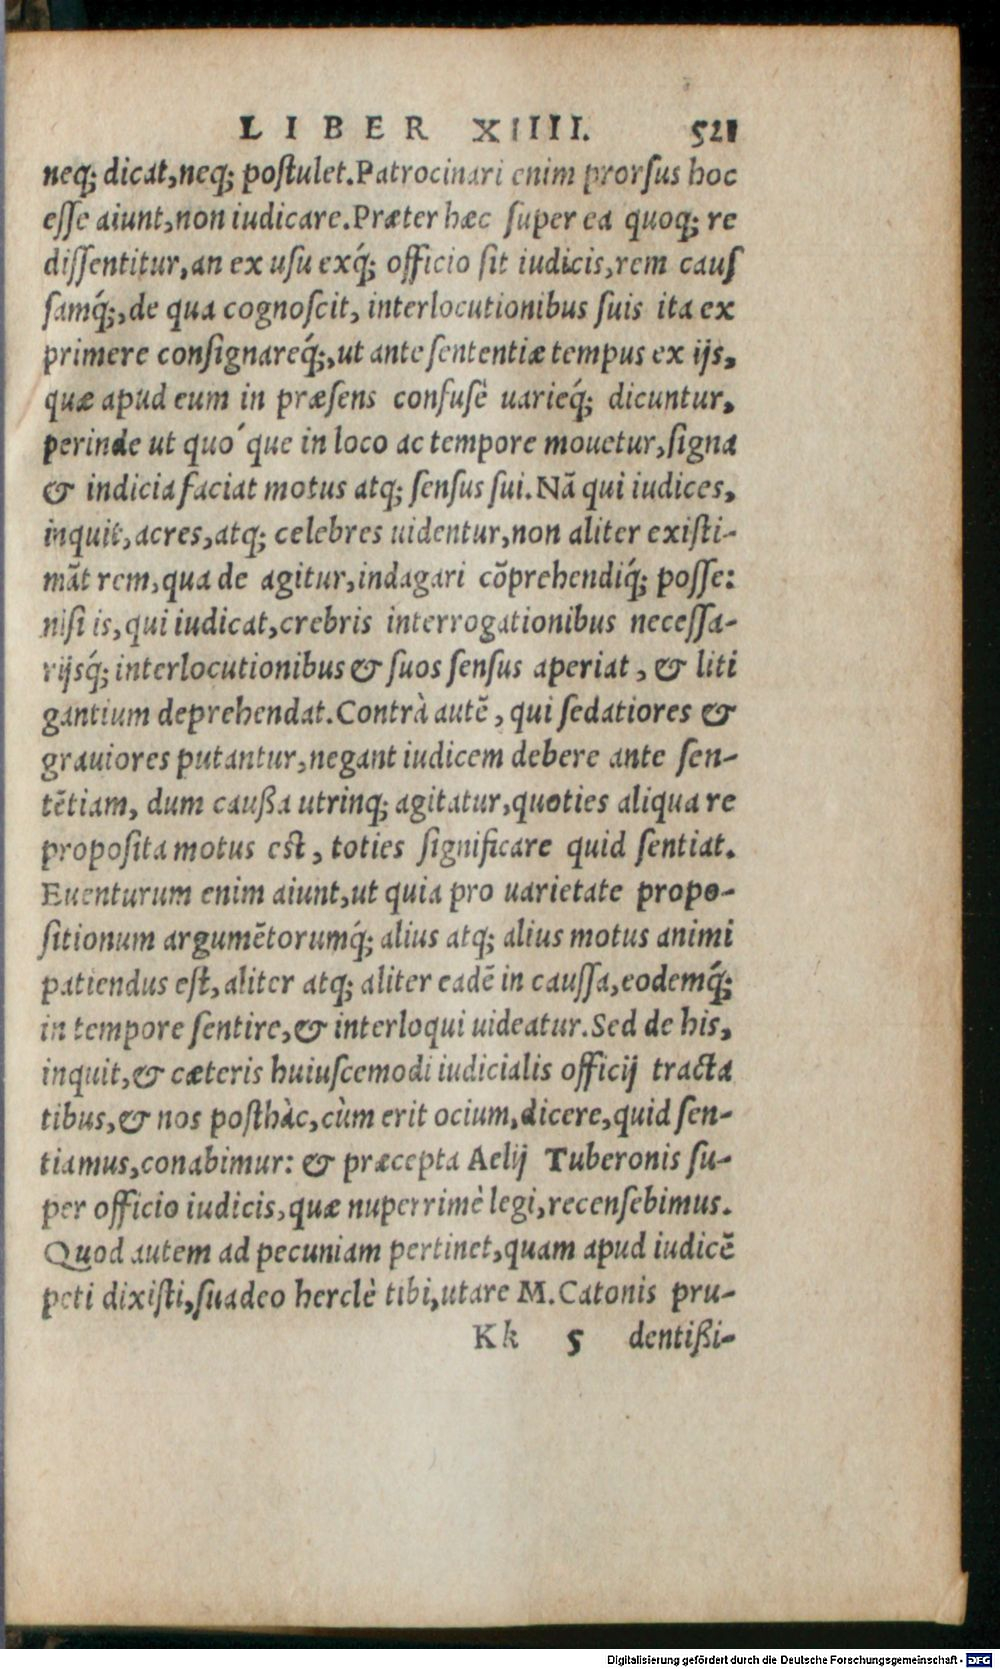 LIBER XIIII. 521
neq; dicat, neq; poſtulet. Patrocinari enim prorſus hoc
eſſe aiunt, non iudicare. Præter hæc ſuper ea quoq; re
diſſentitur, an ex uſu exq́; officio ſit iudicis, rem cauſ
ſamq́;, de qua cognoſcit, interlocutionibus ſuis ita ex
primere conſignareq́;, ut ante ſententiæ tempus ex ijs,
quæ apud eum in præſens confuſè uarieq́; dicuntur,
perinde ut quo´que in loco ac tempore mouetur, ſigna
& indicia faciat motus atq; ſenſus ſui. Nã qui iudices,
inquit, acres, atq; celebres uidentur, non aliter exiſti-
mãt rem, qua de agitur, indagari cõprehendiq́; poſſe:
niſi is, qui iudicat, crebris interrogationibus neceſſa-
rijsq́; interlocutionibus & ſuos ſenſus aperiat, & liti
gantium deprehendat. Contrà autẽ, qui ſedatiores &
grauiores putantur, negant iudicem debere ante ſen-
tẽtiam, dum caußa utrinq; agitatur, quoties aliqua re
propoſita motus eſt, toties ſignificare quid ſentiat.
Euenturum enim aiunt, ut quia pro uarietate propo-
ſitionum argumẽtorumq́; alius atq; alius motus animi
patiendus eſt, aliter atq; aliter eadẽ in cauſſa, eodemq́;
in tempore ſentire, & interloqui uideatur. Sed de his,
inquit, & cæteris huiuſcemodi iudicialis officij tracta
tibus, & nos poſthàc, cùm erit ocium, dicere, quid ſen-
tiamus, conabimur: & præcepta Aelij Tuberonis ſu-
per officio iudicis, quæ nuperrimè legi, recenſebimus.
Quod autem ad pecuniam pertinet, quam apud iudicẽ
peti dixiſti, ſuadeo herclè tibi, utare M. Catonis pru-
Kk 5 dentißi-
Digitalisierung gefördert durch die Deutsche Forschungsgemeinschaft - DFG